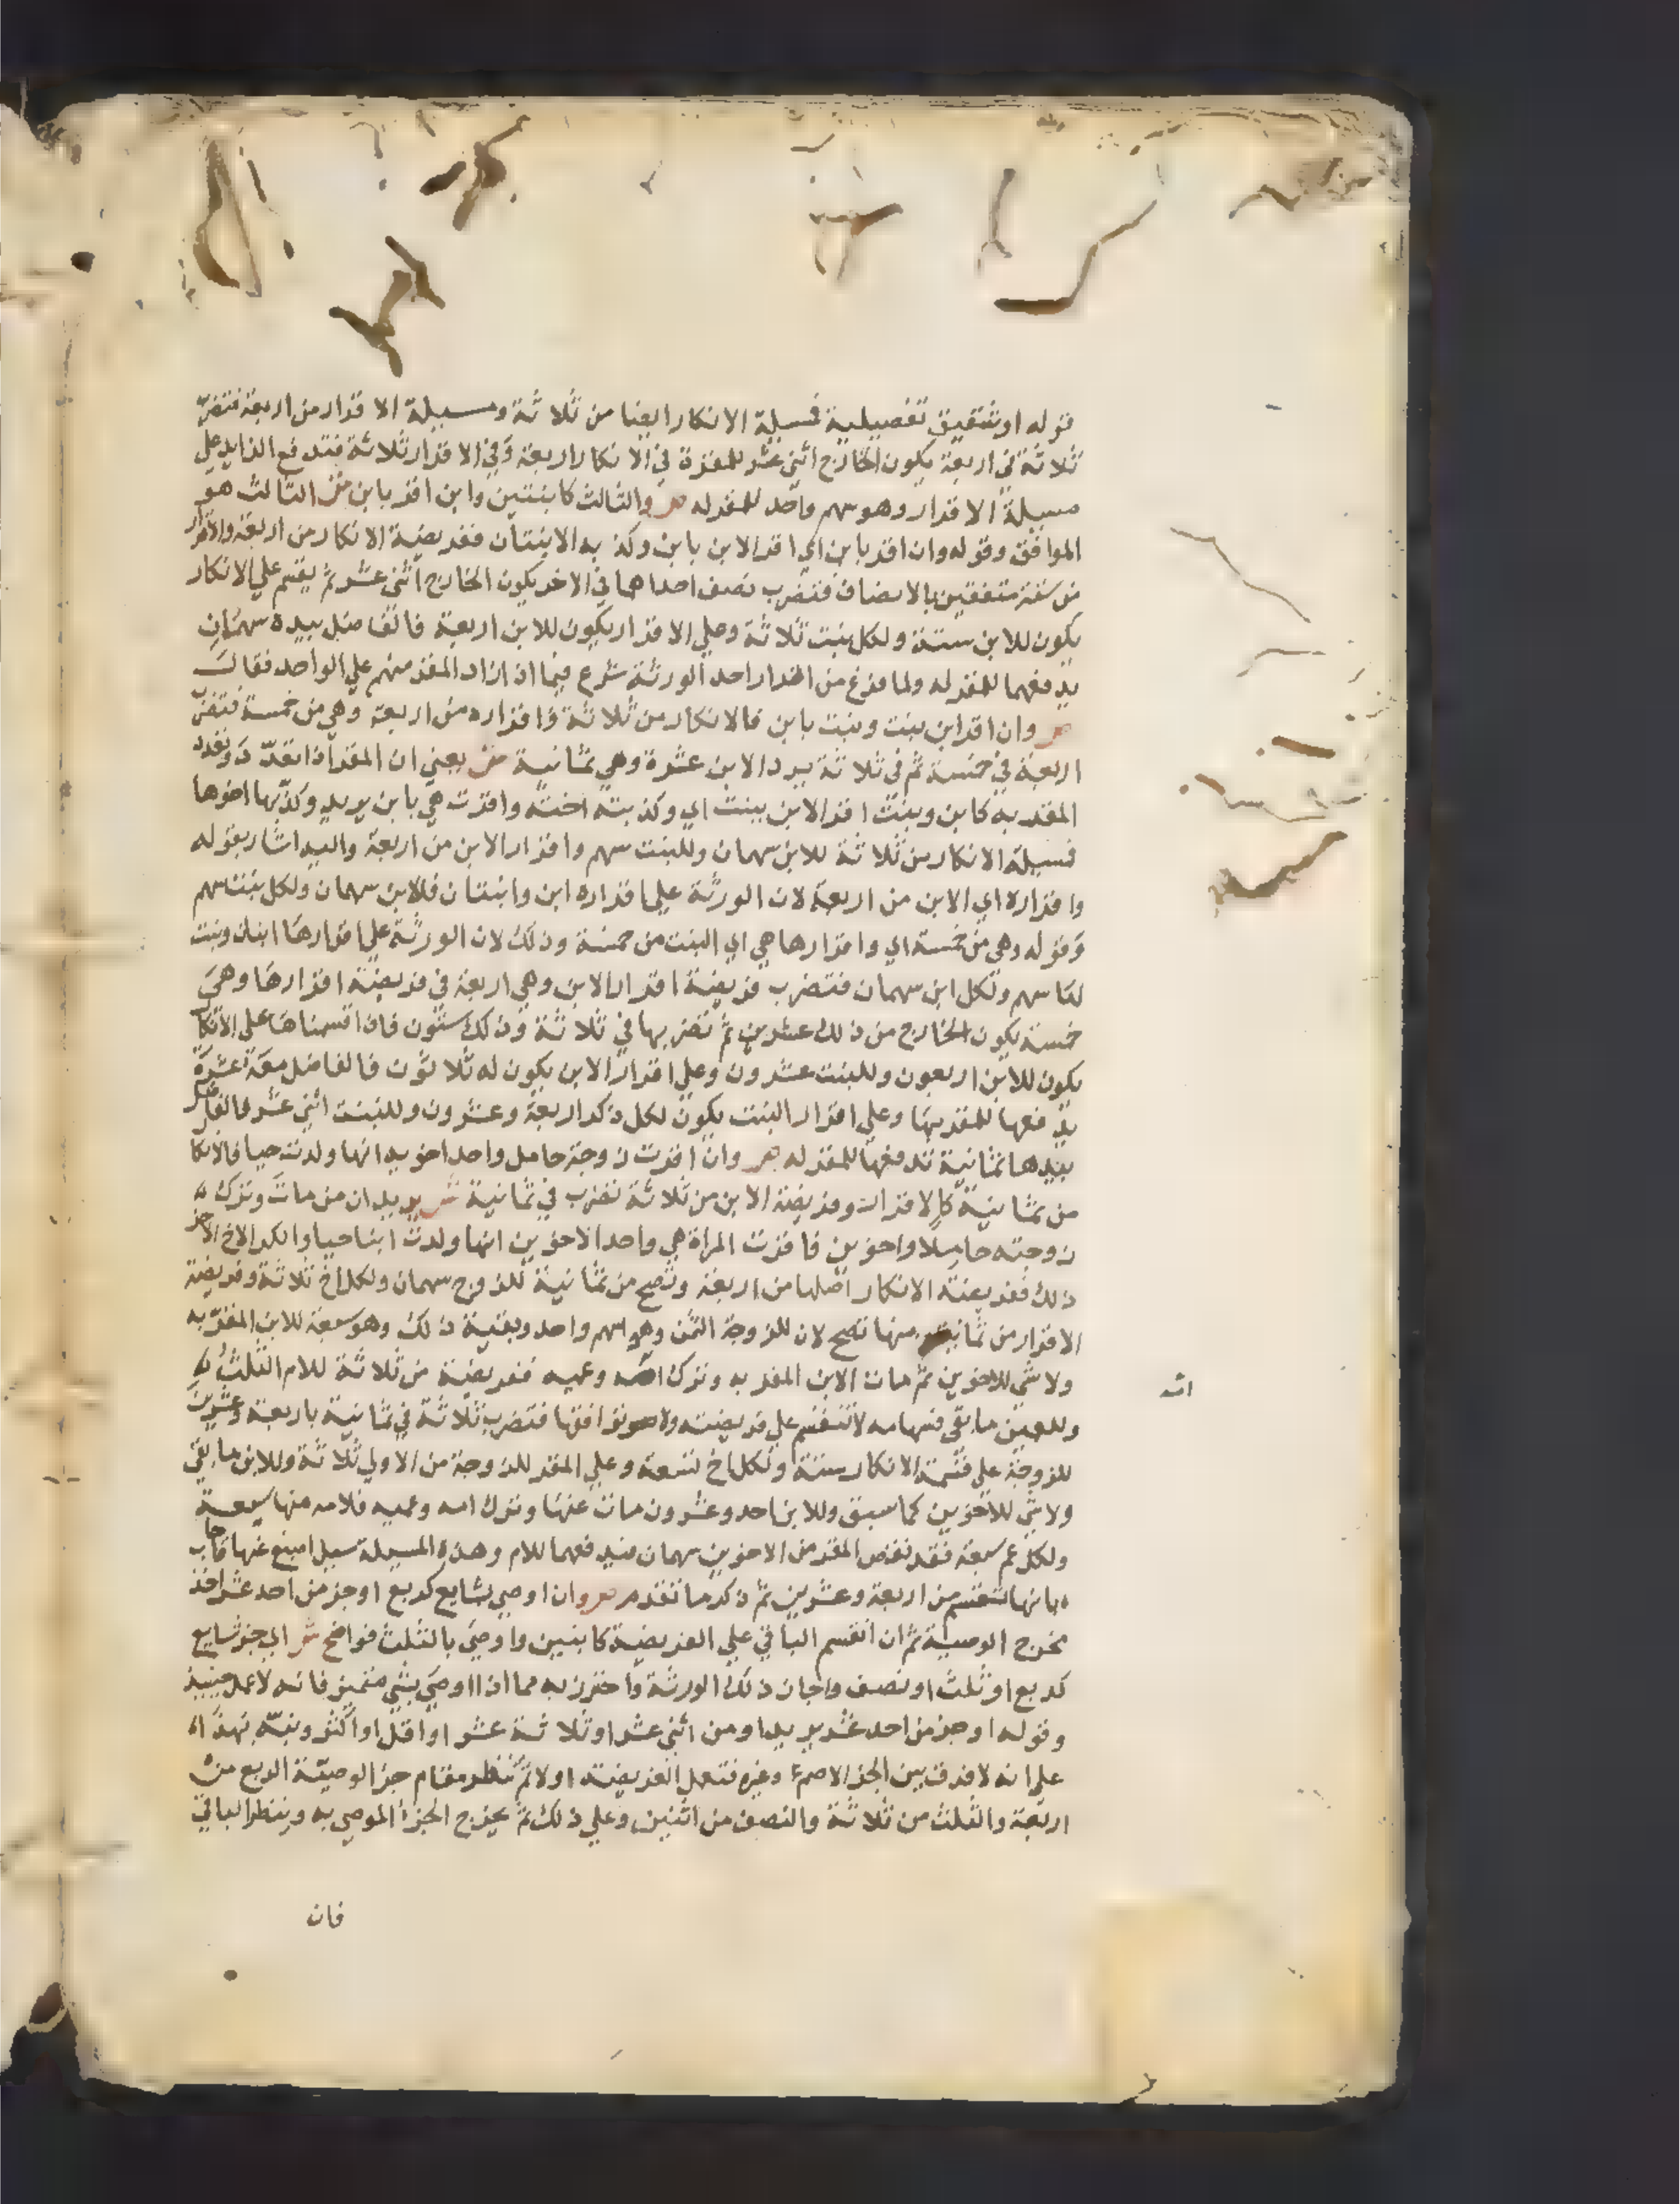 قوله او شقيق تفصيلية فمسيلة الانكار ايضا من ثلاثة ومسيلة الاقرار من اربعة فتضرب
ثلاثة في اربعة يكون الخارج اثني عشر للمقرة في الانكار اربعة وفي الاقرار ثلاثة فتدفع الزايد علي
مسيلة الاقرار وهو سهم واحد للمقر له ص والثالث كابنتين وابن اقر بابن ش الثالث هو
الموافق وقوله وان اقر بابن اي اقر الابن بابن وكذبه الابنتان ففريضة الانكار من اربعة والاقرار
من ستة متفقتين بالانصاف فتضرب نصف احداهما في الاخر يكون الخارج اثني عشر ثم يقسم علي الانكار
يكون للابن ستة ولكل بنت ثلاثة وعلي الاقرار يكون للابن اربعة فالفاضل بيده سهمان
يدفعهما للمقر له ولما فرغ من اقرار احد الورثة شرع فيما اذا زاد المقر منهم علي الواحد فقال
ص وان اقر ابن ببنت وبنت بابن فالانكار من ثلاثة واقراره من اربعة وهي من خمسة فتضرب
اربعة في خمسة ثم في ثلاثة يرد الابن عشرة وهي ثمانية ش يعني ان المقر اذا تعدد وتعدد
المقر به كابن وبنت اقر الابن ببنت اي وكذبته اخته واقرت هي بابن يريد وكذبها اخوها
فمسيلة الانكار من ثلاثة للابن سهمان وللبنت سهم واقرار الابن من اربعة واليه اشار بقوله
واقراره اي الابن من اربعة لان الورثة علي اقراره ابن وابنتان فللابن سهمان ولكل بنت سهم
وقوله وهي من خمسة اي واقرارها هي اي البنت من خمسة وذلك لان الورثة علي اقرارها ابنان وبنت
لها سهم ولكل ابن سهمان فتضرب فريضة اقرار الابن وهي اربعة في فريضة اقرارها وهي
خمسة يكون الخارج من ذلك عشرين ثم تضربها في ثلاثة وذلك ستون فان اقسمناها علي الانكار
يكون للابن اربعون وللبنت عشرون وعلي اقرار الابن يكون له ثلاثون فالفاضل معه عشرة
يدفعها للمقر بها وعلي اقرار البنت يكون لكل ذكر اربعة وعشرون وللبنت اثني عشر فالفاضل
بيدها ثمانية تدفعها للمقر له ص وان اقرت زوجة حامل واحد اخويه انها ولدت حيا فالانكار
من ثمانية كالاقرار وفريضة الابن من ثلاثة تضرب في ثمانية ش يريد ان من مات وترك
زوجته حاملا واخوين فاقرت المراة هي واحد الاخوين انها ولدت ابنا حيا وانكر الاخ الاخر
ذلك ففريضة الانكار اصلها من اربعة وتصح من ثمانية للزوج سهمان ولكل اخ ثلاثة وفريضة
الاقرار من ثمانية منها تصح لان للزوجة الثمن وهو سهم واحد وبقية ذلك وهو سبعة للابن المقر به
ولا شي للاخوين ثم مات الابن المقر به وترك امه وعميه ففريضة من ثلاثة للام الثلث
وللعمين ما بقي فسهامه لا تنقسم علي فريضته ولا توافقها فتضرب ثلاثة في ثمانية باربعة وعشرين
للزوجة علي قسمة الانكار ستة ولكل اخ تسعة وعلي المقر للزوجة من الاولي ثلاثة وللابن ما بقي
ولا شي للاخوين كما سبق وللابن احد وعشرون مات عنها وترك امه وعميه فلامه منها سبعة
ولكل عم سبعة فقد نقص المقر من الاخوين سهمان فيدفعهما للام وهذه المسيلة سيل اصبغ عنها فاجاب
بانها تنقسم من اربعة وعشرين ثم ذكر ما تقدم ص وان اوصي بشايع كربع او جز من احد عشر اخذ
مخرج الوصية ثم ان انقسم الباقي علي الفريضة كابنين واوصي بالثلث فواضح ش اي بجز شايع
كربع او ثلث او نصف واجاز ذلك الورثة واحترز به مما اذا اوصي بشي متميز فانه لا عمل حينيذ
وقوله او جز من احد عشر يريد او من اثني عشر او ثلاثة عشر او اقل او اكثر ونبه بهذا
علي انه لا فرق بين الجز الاصم وغيره فتعمل الفريضة اولا ثم تنظر مقام جز الوصية الربع من
اربعة والثلث من ثلاثة والنصف من اثنين وعلي ذلك ثم يخرج الجزء الموصي به وينظر الباقي
فان
امه